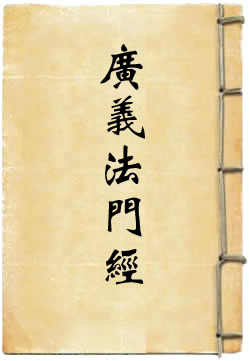 廣義法門經